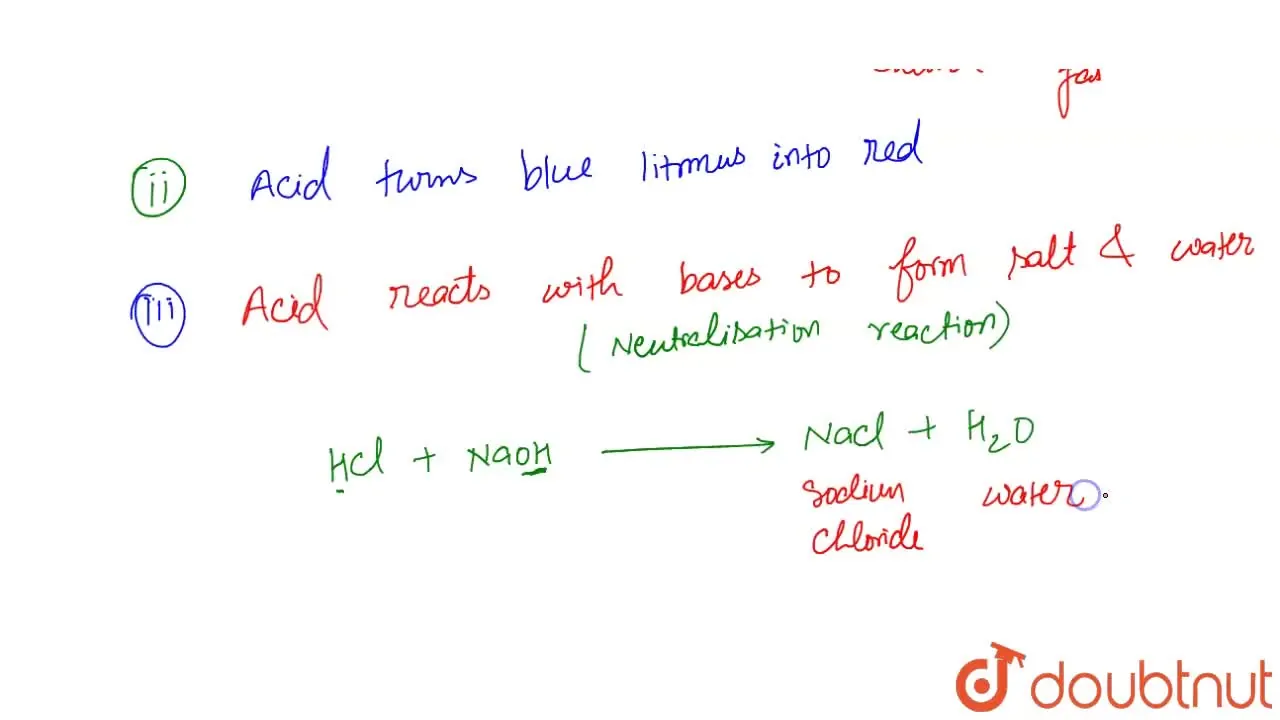 gas
(ii) Acid turns blue litmus into red
(iii) Acid reacts with bases to form salt & water
(Neutralisation reaction)
HCl + NaOH ⟶ NaCl + H₂O
Sodium water
chloride
doubtnut